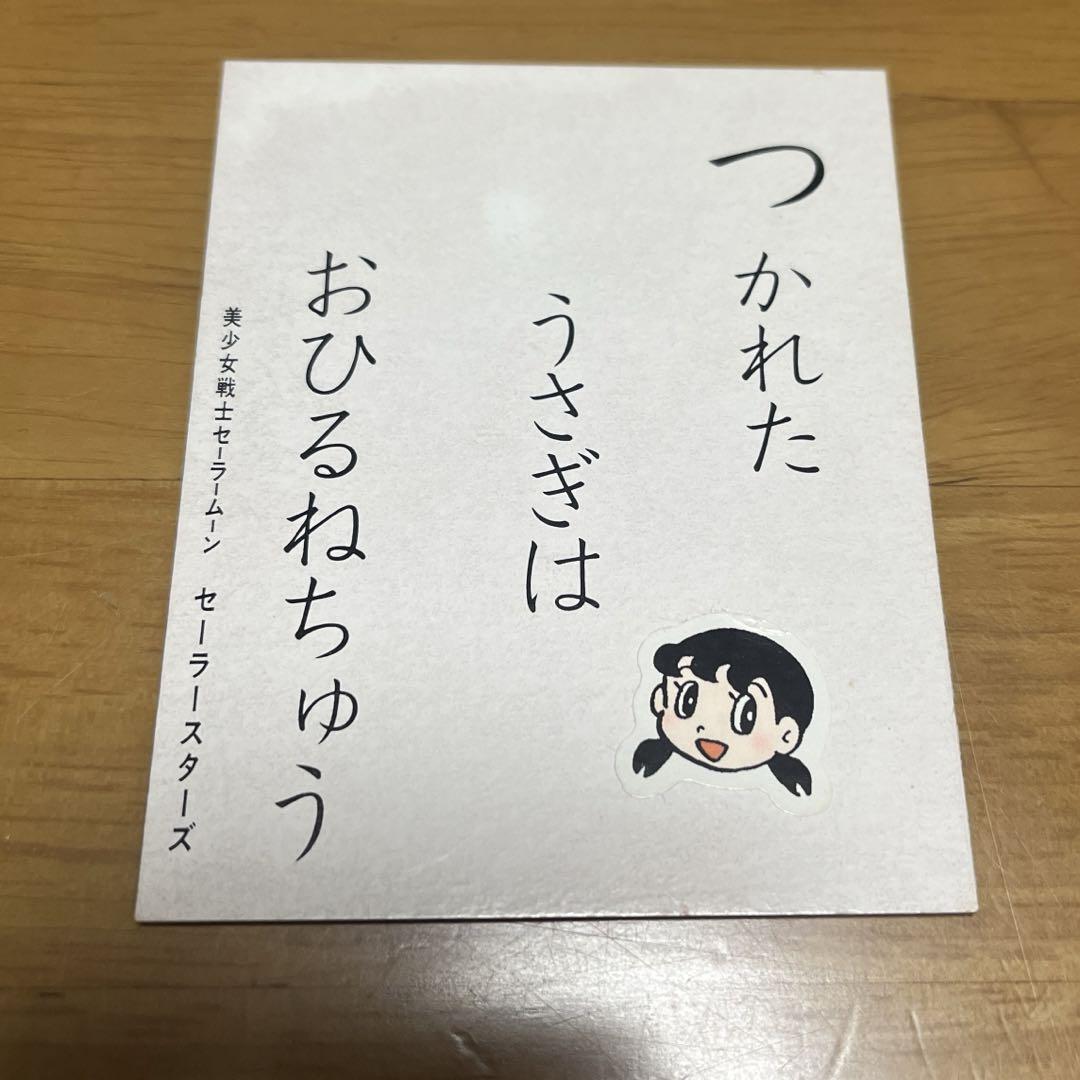 つかれた
うさぎは
おひるねちゅう
美少女戦士セーラームーン セーラースターズ